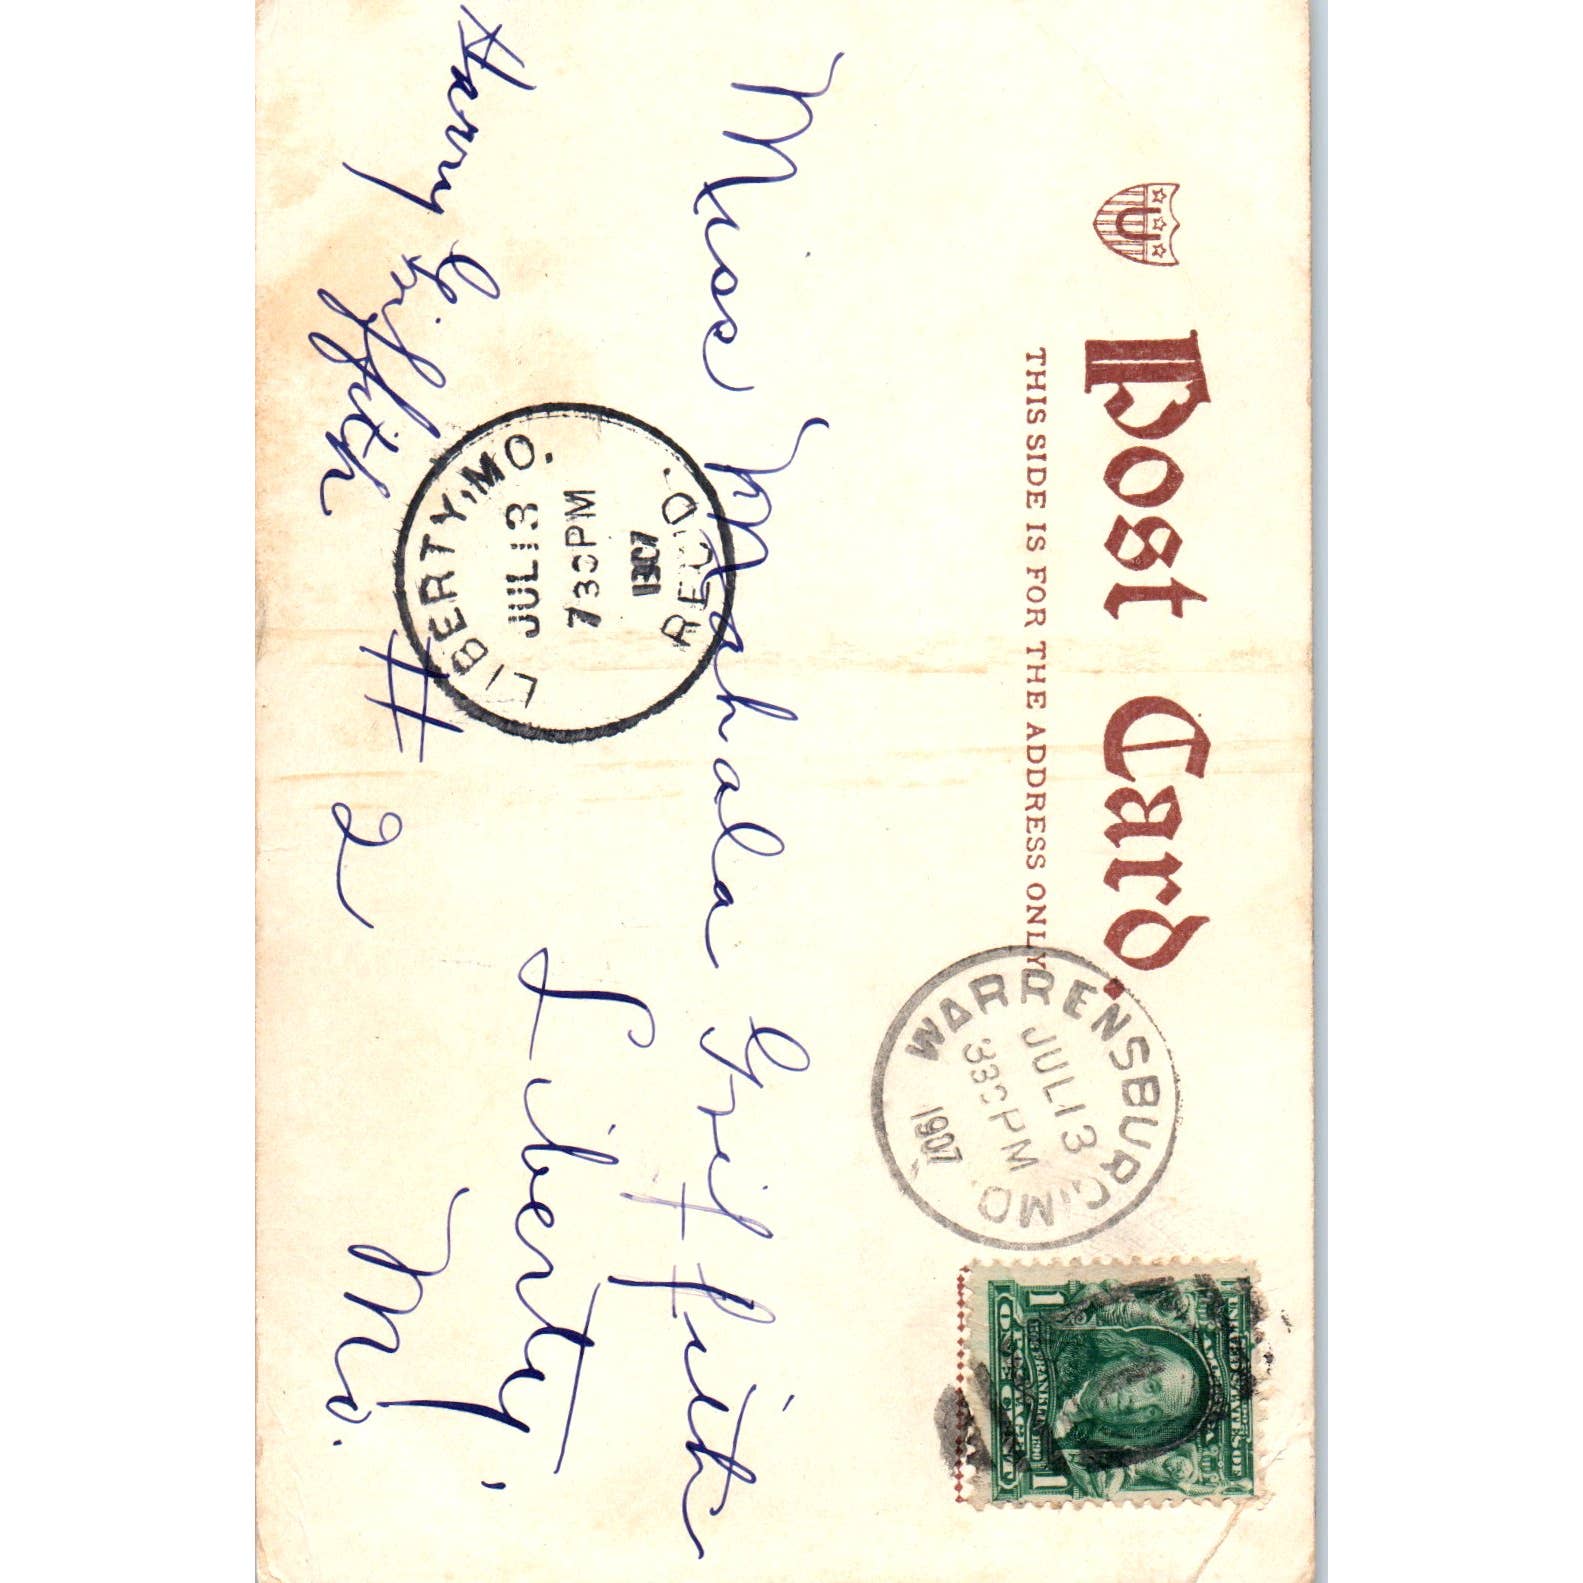 U
Post Card.
THIS SIDE IS FOR THE ADDRESS ONLY.
WARRENSBURG, MO.
JUL 13
330 PM
1907
UNITED STATES OF
AMERICA
FRANKLIN
1 ONE CENT 1
Miss Mahala Griffith
Liberty,
Mo.
Harry Griffith # 2
LIBERTY, MO.
JUL 13
730 PM
1907
REC'D.